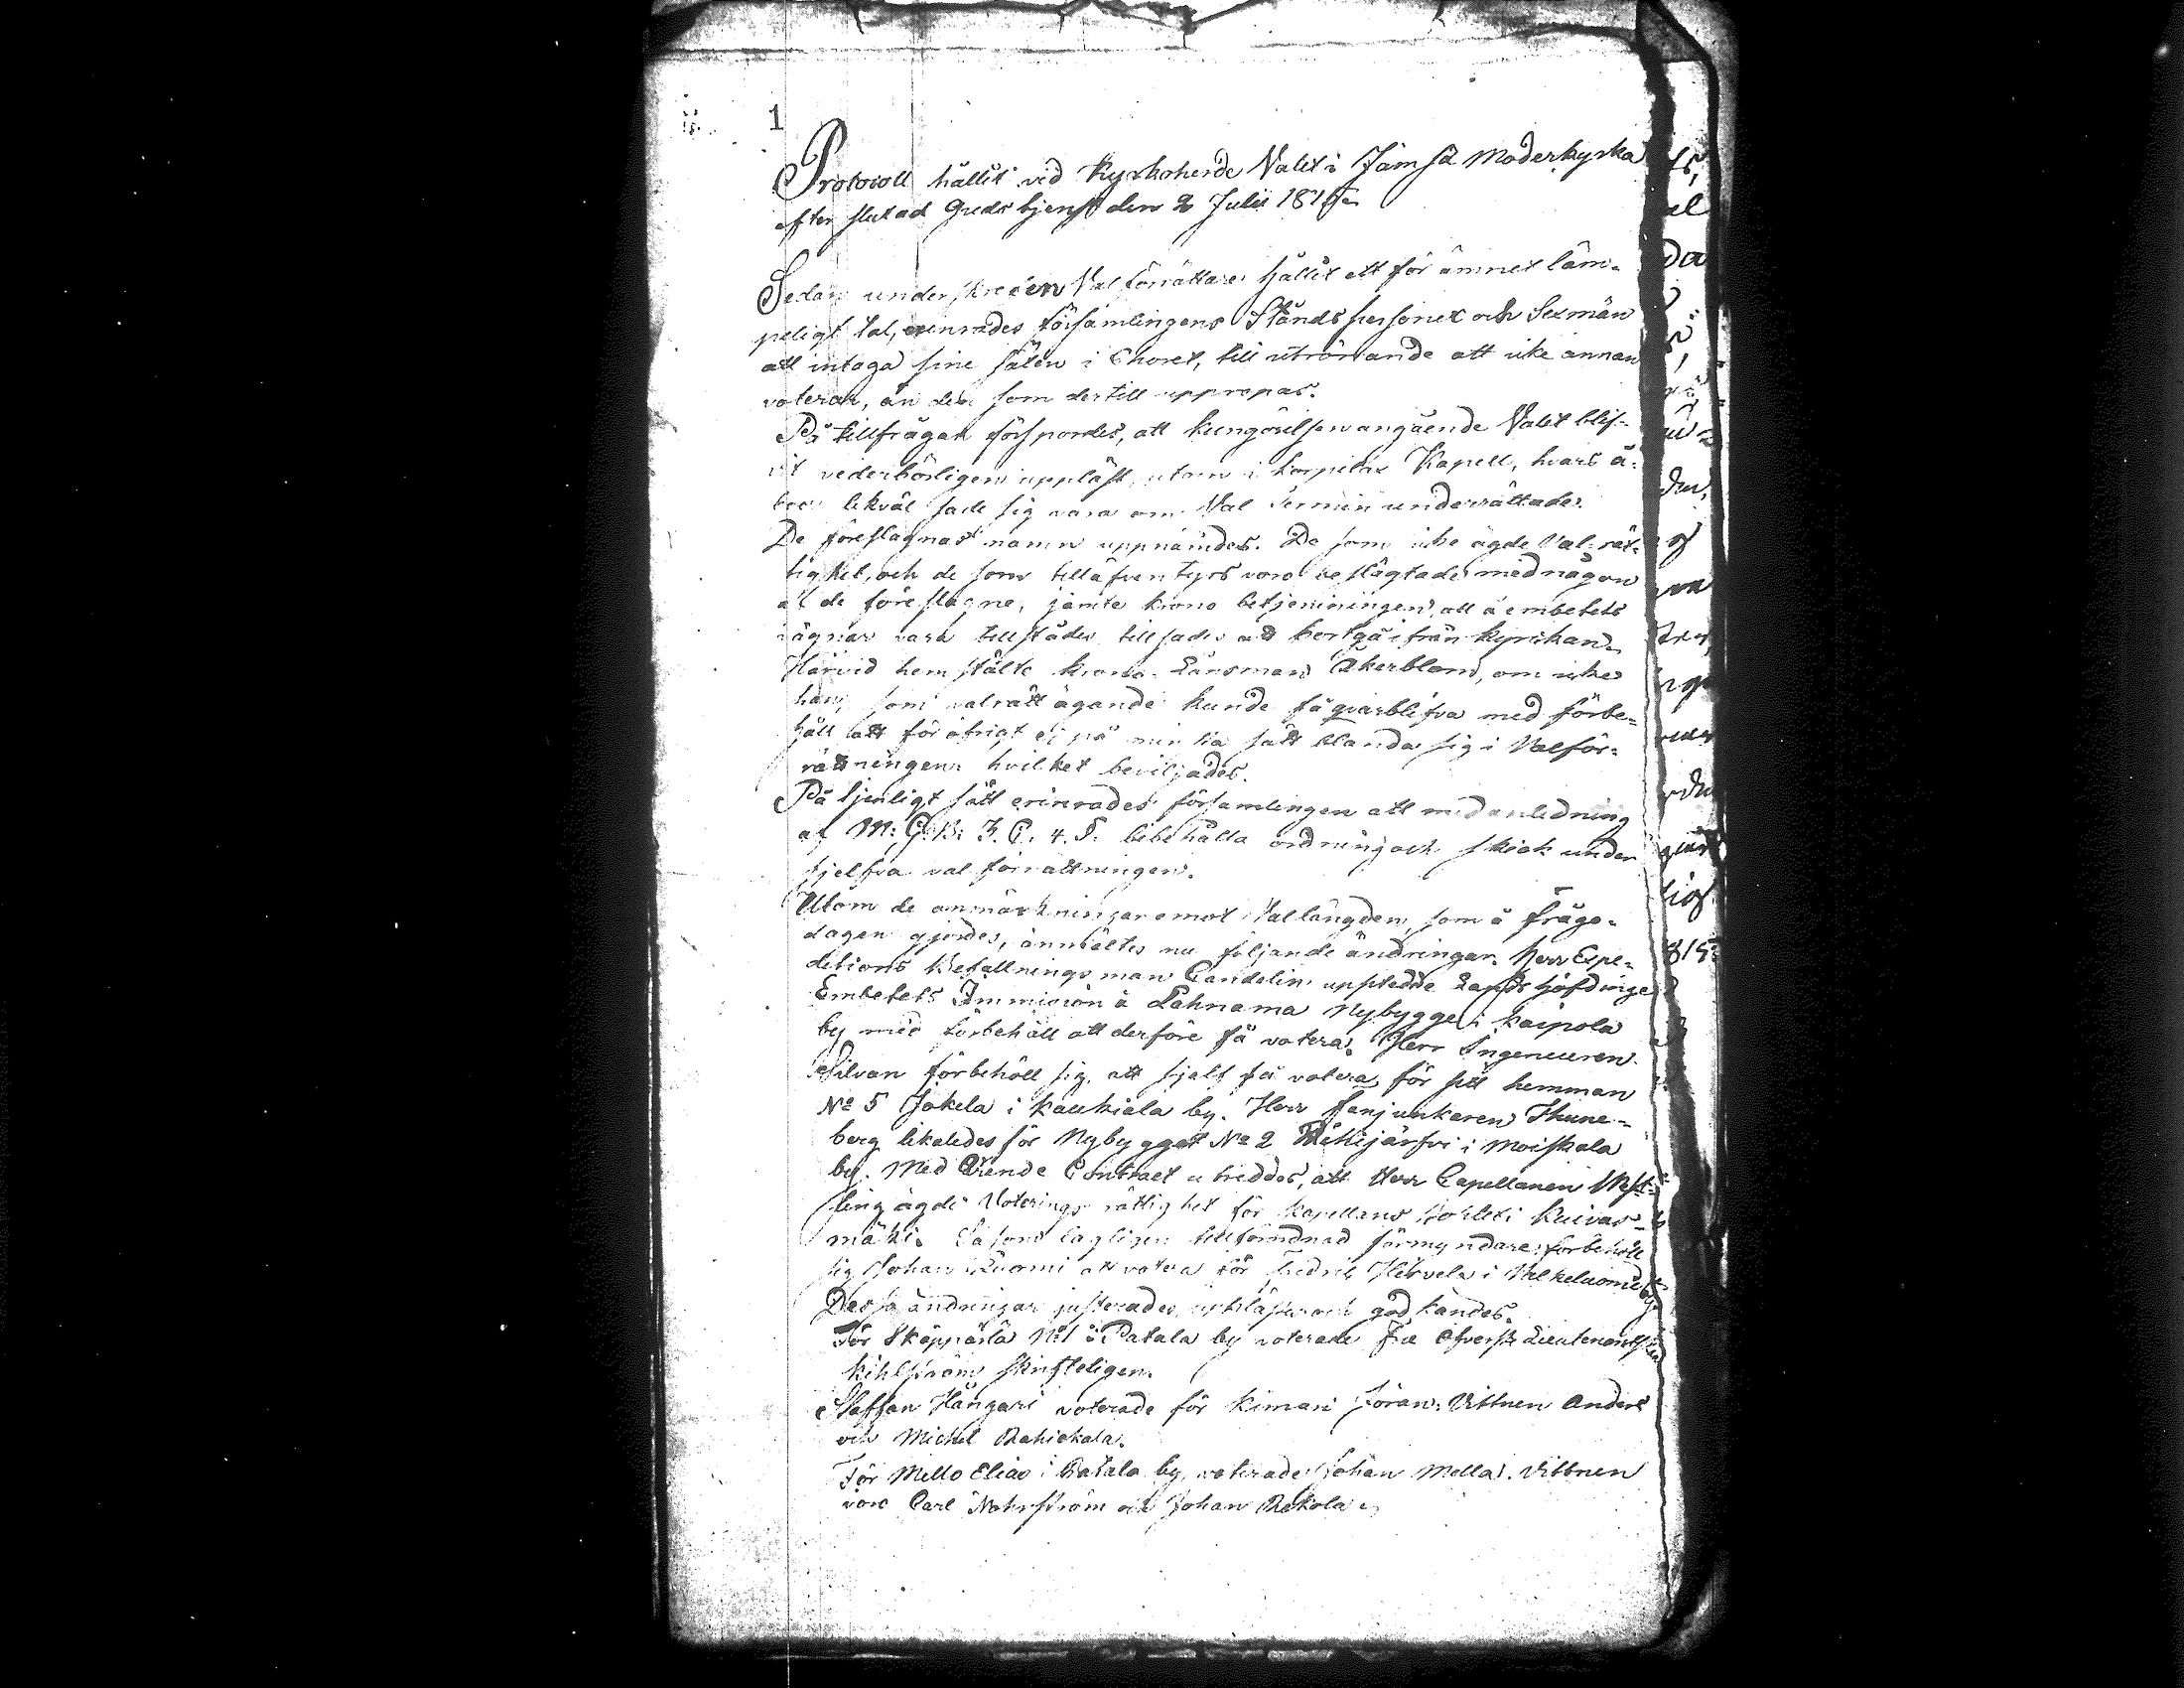 1
Protocoll hållit vid Kyrkoherde Valet i Jämsä Moderkyrka
efter slutad Gudstjenst den 2 Julii 1815
Sedan underskrefven Valförrättare hållit ett för ämnet läm-
peligt tal, erinrades församlingens Ståndspersoner och Sexmän
att intaga sine säten i Choret, till utrönande att icke annan
voterar, än den som dertill uppropas.
På tillfrågan försportes, att kungörelsen angående Valet blif-
vit vederbörligen uppläst, utom i Korpilax Kapell, hvars å-
boer likväl sade sig vara om Val Termin underrättade.
De föreslagnas namn uppnämdes. De som icke ägde Val-rät-
tighet, och de som tilläfventyrs voro beslägtade med någon
af de föreslagne, jämte krono betjeningen att å embetets
vägnar vara tillstädes, tillsades att bortgå ifrån kyrckan
Härvid hemstälte krono-Länsman Åkerblom, om icke
han, som valrätt ägande kunde få qvarblifva med förbe-
håll att för öfrigt ej på minsta sätt blanda sig i Valför-
rättningen hvilket beviljades.
På tjenligt sätt erinrades församlingen att med anledning
af M: G. B: 3. C. 4. §. bibehålla ordning och skick under
sjelfva valförrättningen.
Utom de anmärkningar emot Vallängden, som å fråge-
dagen gjordes, anmältes nu följande ändringar. Herr Expe-
ditions Befallningsman Candelin upptedde Landshöfdinge
Embetets Immission å Lahnama Nybygge i Kaipola
by med förbehåll att derföre få votera. Herr Ingenieuren
Silvan förbehöll sig, att sjelf få votera för sitt hemman
No 5 Jokela i Kaukiala by. Herr Fanjunkaren Thune-
berg likaledes för Nybygget No 2 i Moiskala
by. Med Contract utreddes, att Herr Capellanen West-
ling ägde Voterings rättighet för Kapellans Bohlet i Kuivas-
mäki. Såsom lagligen tillförordnad förmyndare förbehöll
sig Johan Suomi att votera för Fredric Hirvela i by
Dessa ändringar justerades, upplästes och godkändes.
För Skäppärlä No 1 i Patala by voterade Fru Öfverste Lieutenantskan
Kihlström skrifteligen.
Staffan Hangari voterade för Kimari Jöran. Vittnen Anders
och Michel Rahickala.
För Mello Elias i Patala by voterade Johan Mella. Vittnen
voro Carl Nohrström och Johan Rekola
815